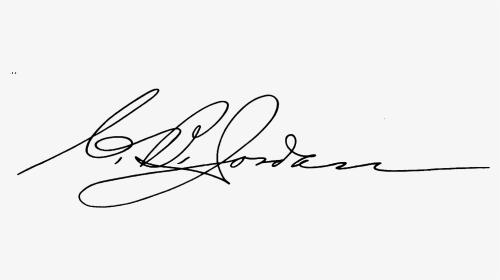 C. D. Jordan